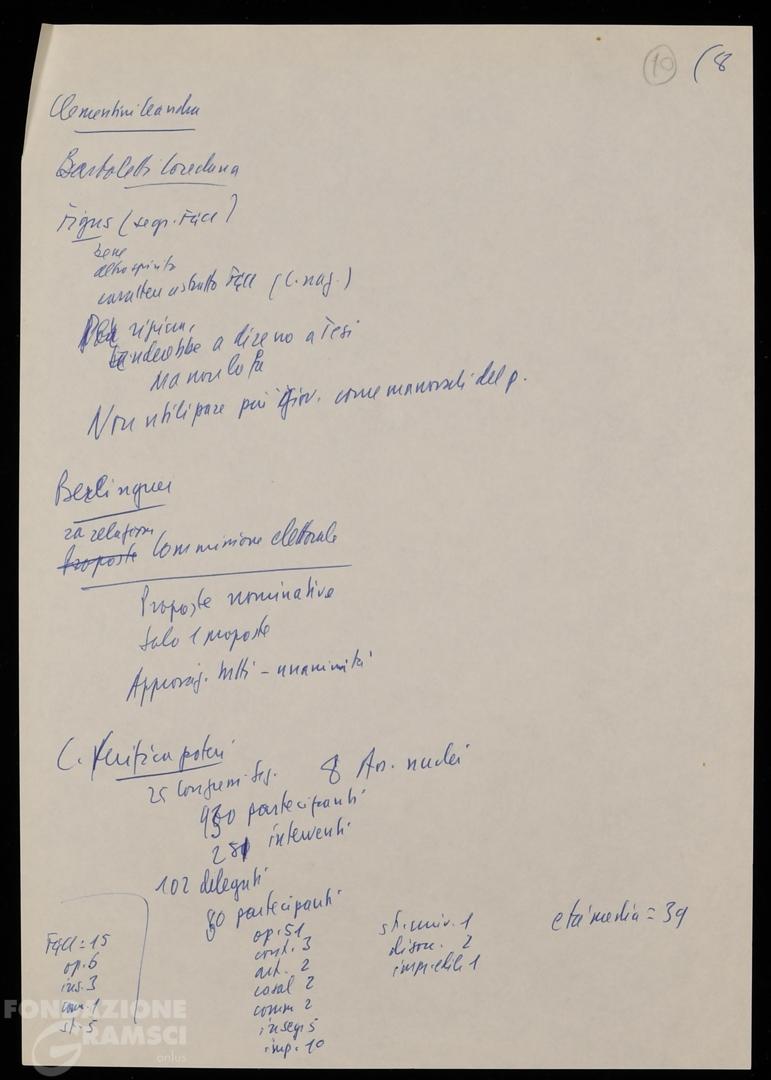 10 (8
Clementini Leandra
Bartoletti Loredana
Figus (segr. FGCI)
bene
altro spirito
carattere astratto FGCI (C. naz.)
ripicca,
tenderebbe a dire no a Tesi
Ma non lo fa
Non utilizzare più i giov. come manovali del p.
Berlinguer
2a relazione
Proposte Commissione elettorale
Proposte nominative
Solo 1 proposte
Approvaz. tutti - unanimità
C. Verifica poteri
25 Congressi Sez. 8 Ass. nuclei
930 partecipanti
281 interventi
102 delegati
80 partecipanti
FGCI = 15
op. 6
ins. 3
com. 1
st. 5
op. 51
cont. 3
art. 2
casal 2
comm 2
insegn 5
imp. 10
st. univ. 1
disoc. 2
imp. edile 1
età media = 39
FONDAZIONE
GRAMSCI
onlus